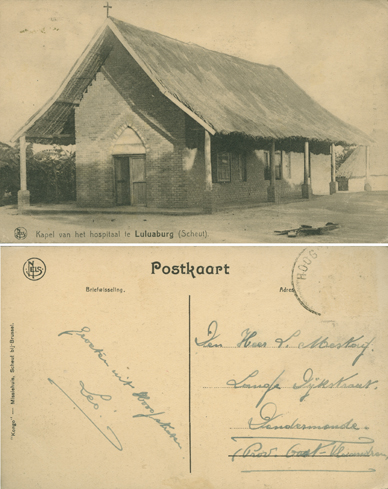 Kapel van het hospitaal te Luluaburg (Scheut).
NELS
Postkaart
Briefwisseling.
Adres
ROOS
"Kongo" — Missiehuis, Scheut bij-Brussel.
Groeten uit
Leo.
Den Heer L.
Lange Dijkstraat.
Dendermonde.
(Prov. Oost-Vlaanderen